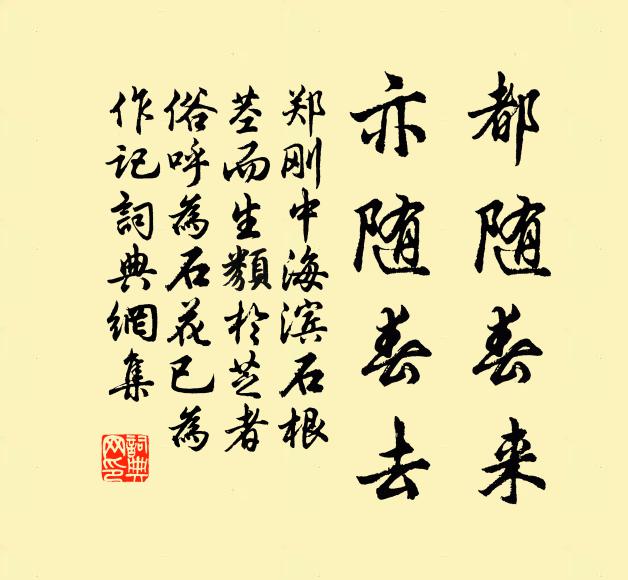 都随春来
亦随春去
郑刚中海滨石根
茎而生类於芝者
俗呼為石花已為
作记词典網集
詞典网印